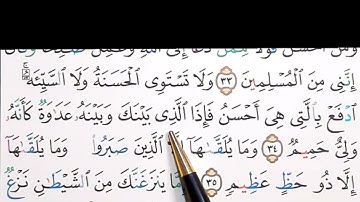 وَمَنْ أَحْسَنُ قَوْلًا مِّمَّن دَعَا إِلَى اللَّهِ وَعَمِلَ صَٰلِحًا وَقَالَ
إِنَّنِي مِنَ الْمُسْلِمِينَ ٣٣ وَلَا تَسْتَوِي الْحَسَنَةُ وَلَا السَّيِّئَةُ ۚ
ادْفَعْ بِالَّتِي هِيَ أَحْسَنُ فَإِذَا الَّذِي بَيْنَكَ وَبَيْنَهُۥ عَدَٰوَةٌ كَأَنَّهُۥ
وَلِيٌّ حَمِيمٌ ٣٤ وَمَا يُلَقَّىٰهَا الَّذِينَ صَبَرُوا وَمَا يُلَقَّىٰهَا
إِلَّا ذُو حَظٍّ عَظِيمٍ ٣٥ يَنزَغَنَّكَ مِنَ الشَّيْطَٰنِ نَزْغٌ